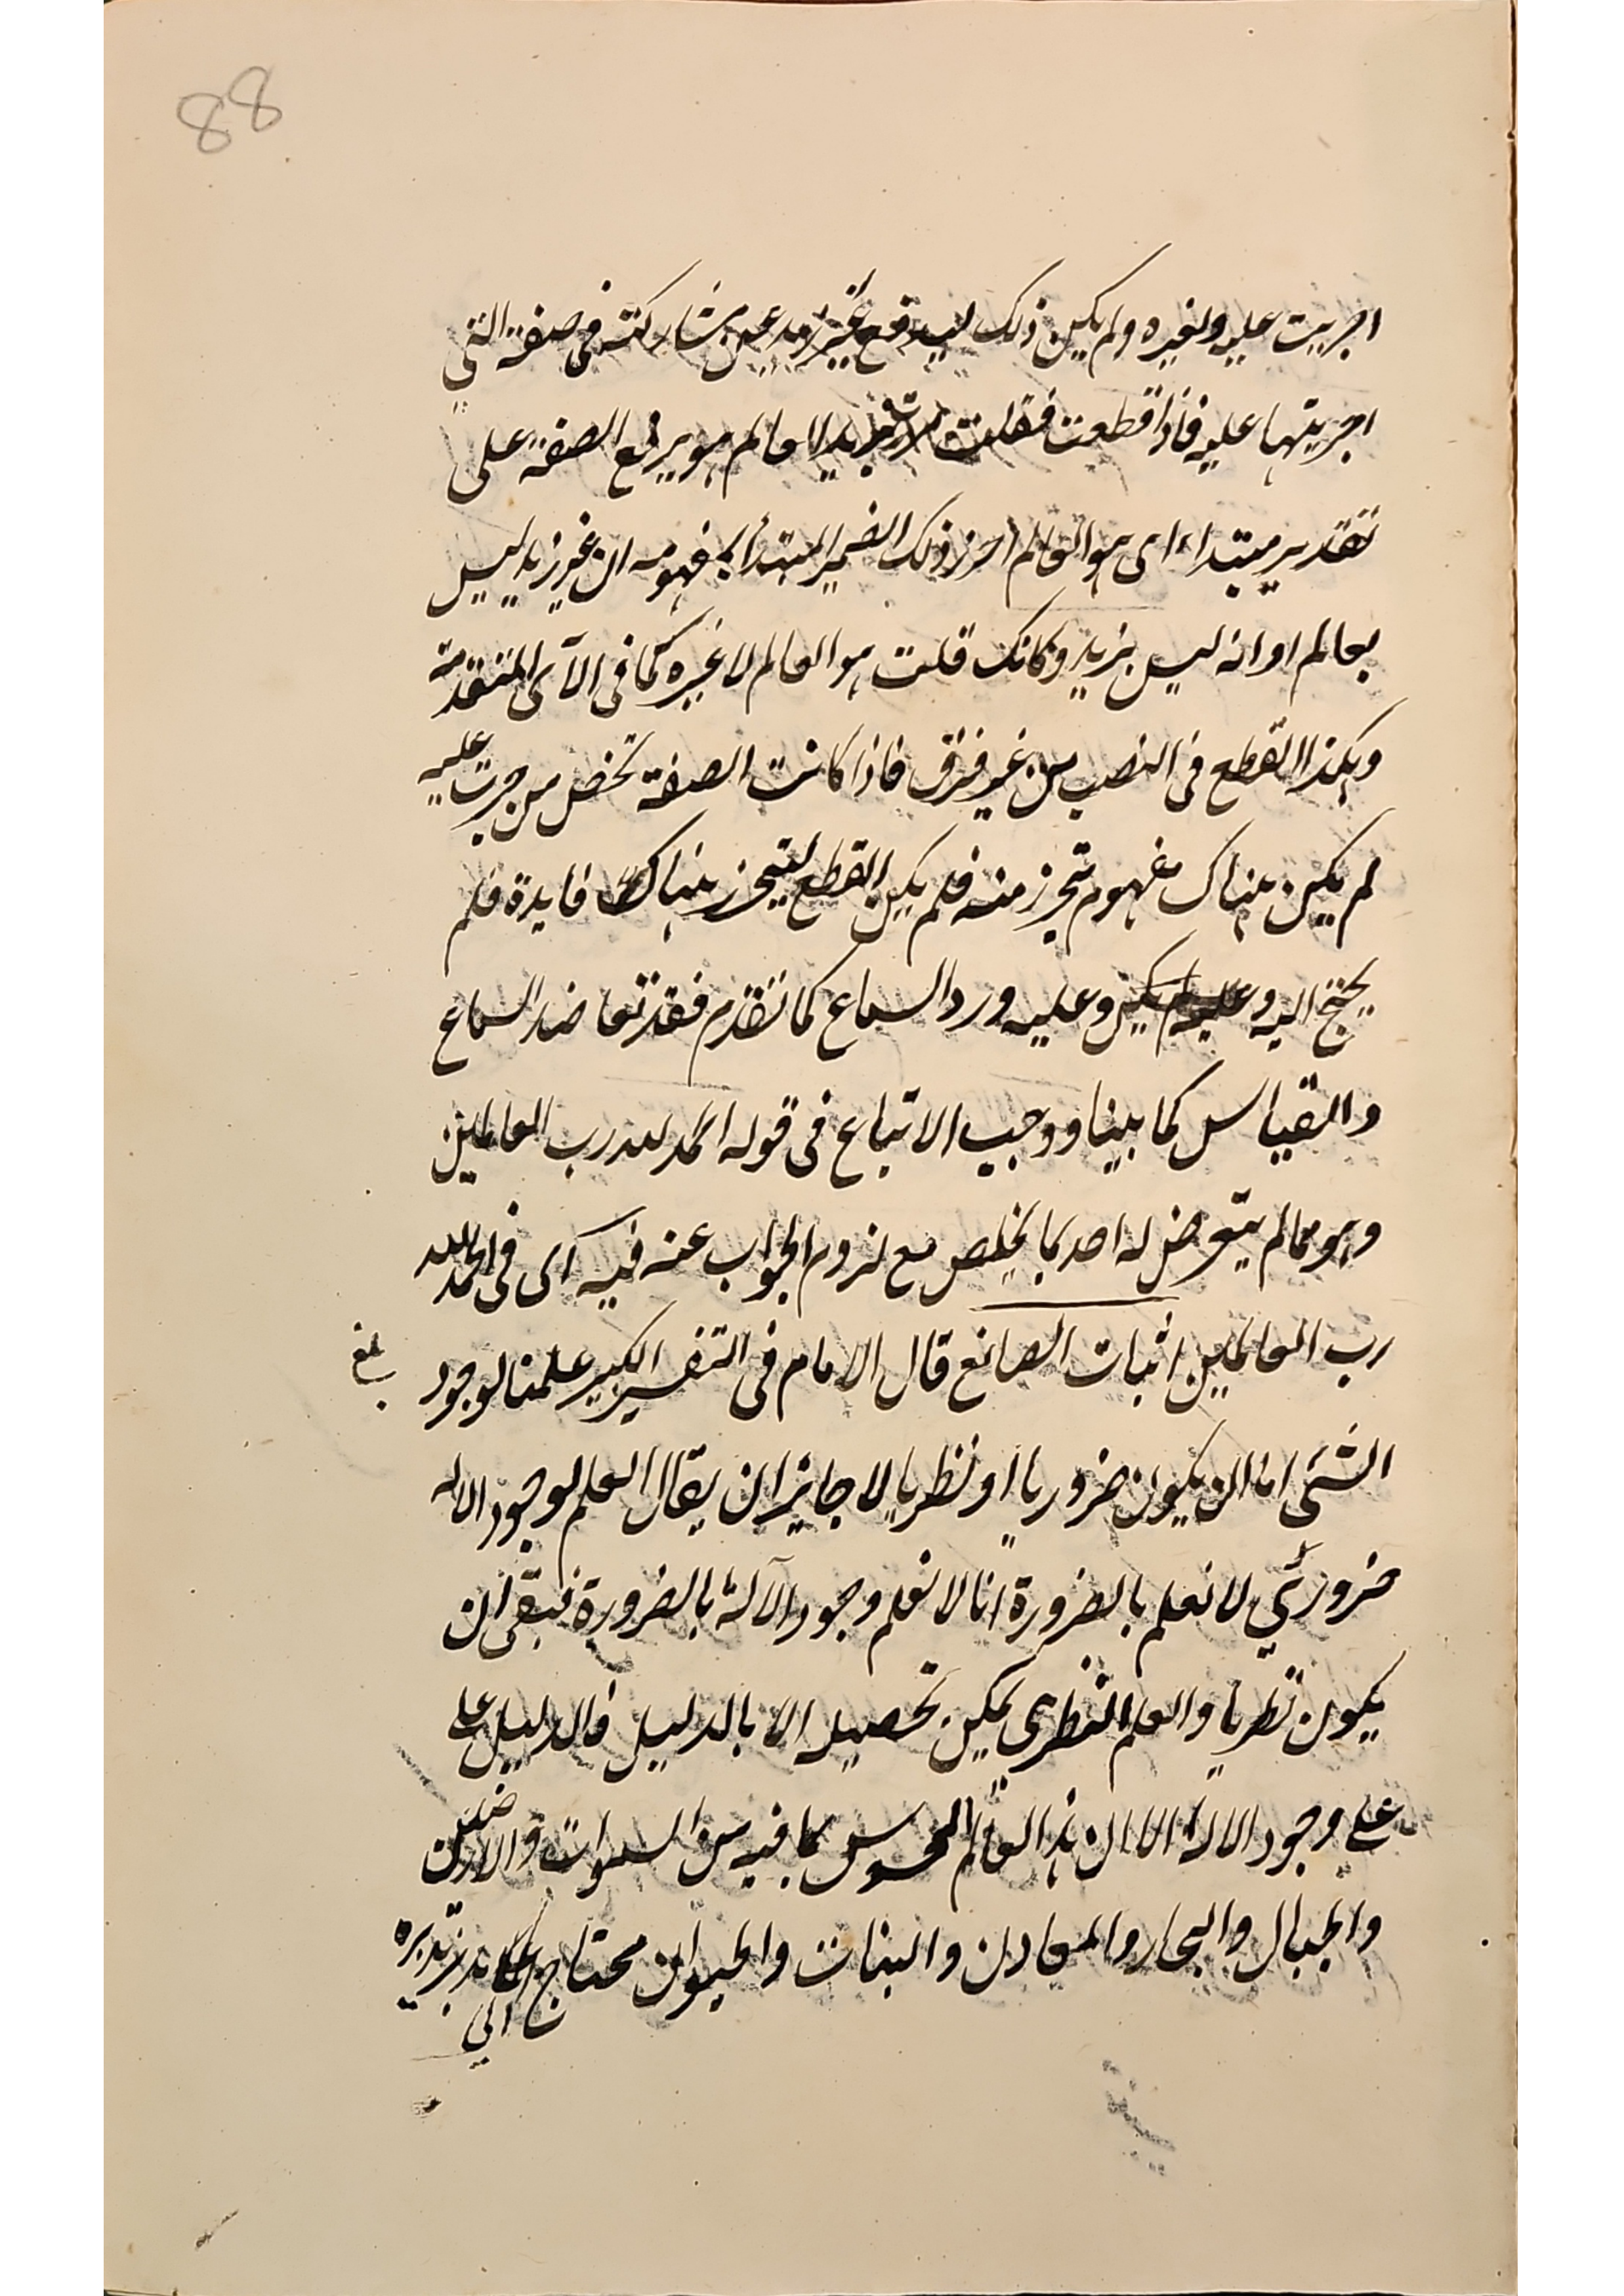 88
اجريت عليه ولغيره ولم يكن ذلك ليدفع غير زيد عن مشاركته في صفته التي
اجريتها عليه فاذا قطعت فقلت بزيد العالم هو يرفع الصفة على
تقدير مبتداء اى هو العالم احرز ذلك الضمير المبتدأ بمفهومه ان غير زيد ليس
بعالم او انه ليس بزيد وكانك قلت هو العالم لا غيره كما فى الآى المتقدمة
وهكذا القطع فى النصب من غير فرق فاذا كانت الصفة تخص من جرت عليه
لم يكن هناك مفهوم يتحرز منه فلم يكن القطع ليتحرز هناك فايدة فلم
يحتج اليه وعليه ورد السماع كما تقدم فقد تعاضد السماع
والقياس كما بينا ووجب الاتباع فى قوله الحمد لله رب العالمين
وهو مما لم يتعرض له احد بما يخلص مع لزوم الجواب عنه فيه اى فى الحمد لله
رب العالمين اثبات الصانع قال الامام فى التفسير الكبير علمنا لوجود
بلغ
الشئ اما ان يكون ضروريا او نظريا لا جايز ان يقال العلم لوجود الاله
ضرورى لا نعلم بالضرورة انا لا نعلم وجود الآله بالضرورة فبقى ان
يكون نظريا والعلم النظرى يمكن تحصيله الا بالدليل ولا دليل على
على وجود الاله الا ان هذا العالم المحسوس بما فيه من السموات والارضين
والجبال والبحار والمعادن والنبات والحيوان محتاج الى مدبر يدبره